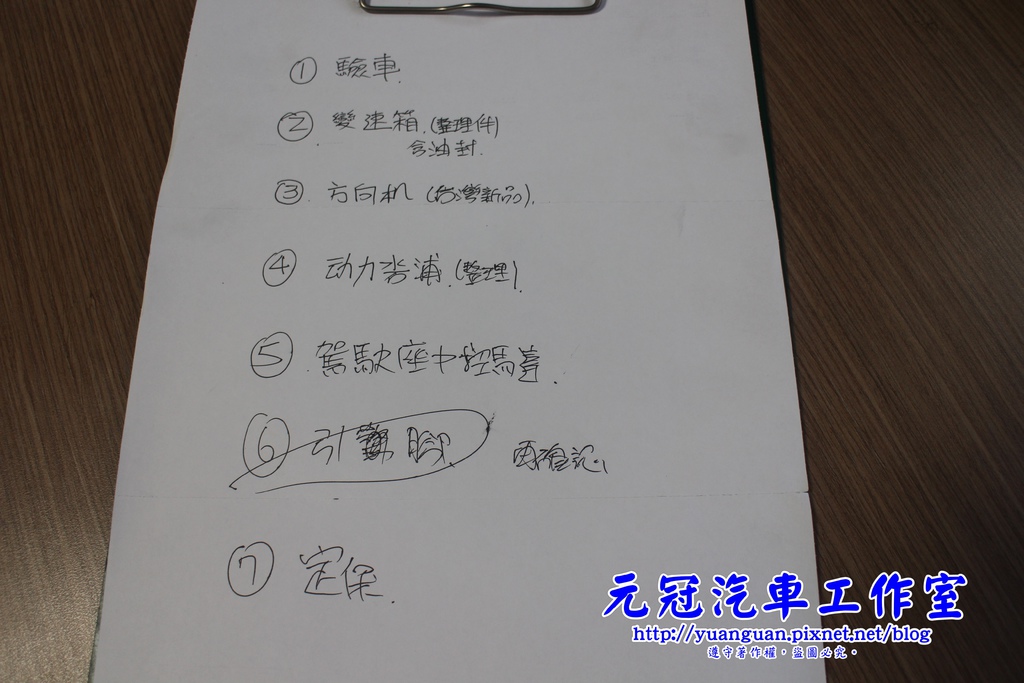 ① 驗車.
② 變速箱.(整理件)
含油封.
③ 方向机 (台灣新品).
④ 动力帮浦.(整理).
⑤ 駕駛座中控馬達.
⑥ 引擎腳.
再確認.
⑦ 定保.
元冠汽車工作室
http://yuanguan.pixnet.net/blog
遵守著作權，盜圖必究。